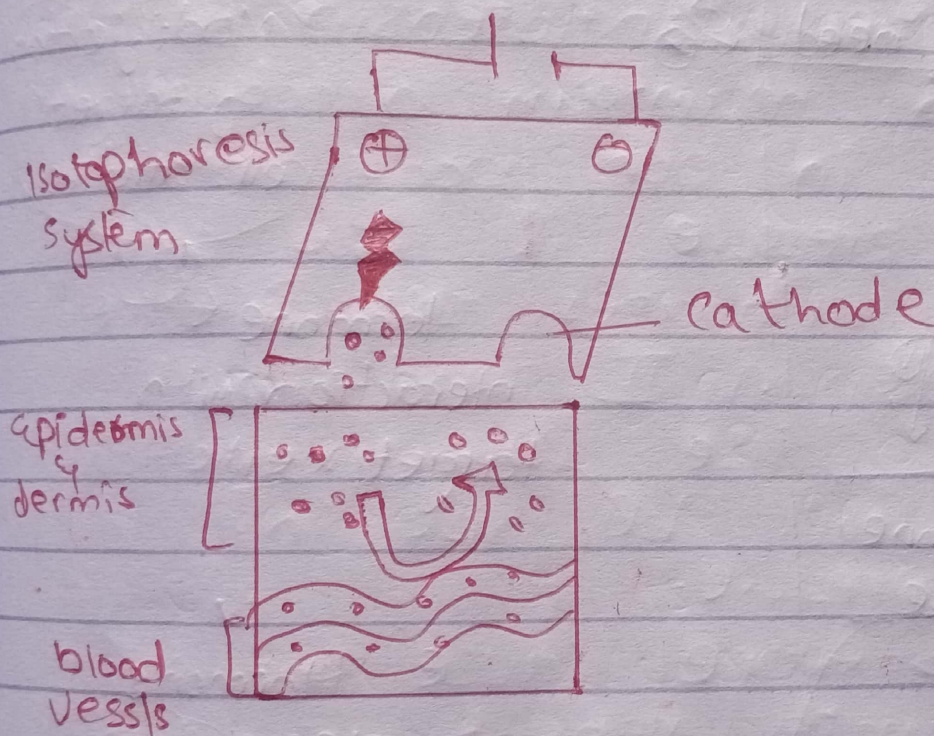 Isotophoresis
system
+
-
cathode
Epidermis
&
dermis
blood
vessls